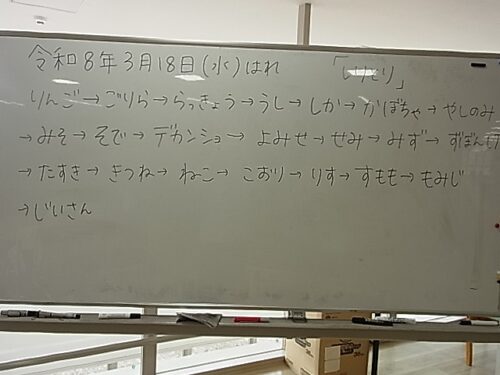 令和8年3月18日(水)はれ 「しりとり」
りんご→ごりら→らっきょう→うし→しか→かぼちゃ→やしのみ
→みそ→そで→デカンショ→よみせ→せみ→みず→ずぼんした
→たすき→きつね→ねこ→こおり→りす→すもも→もみじ
→じいさん